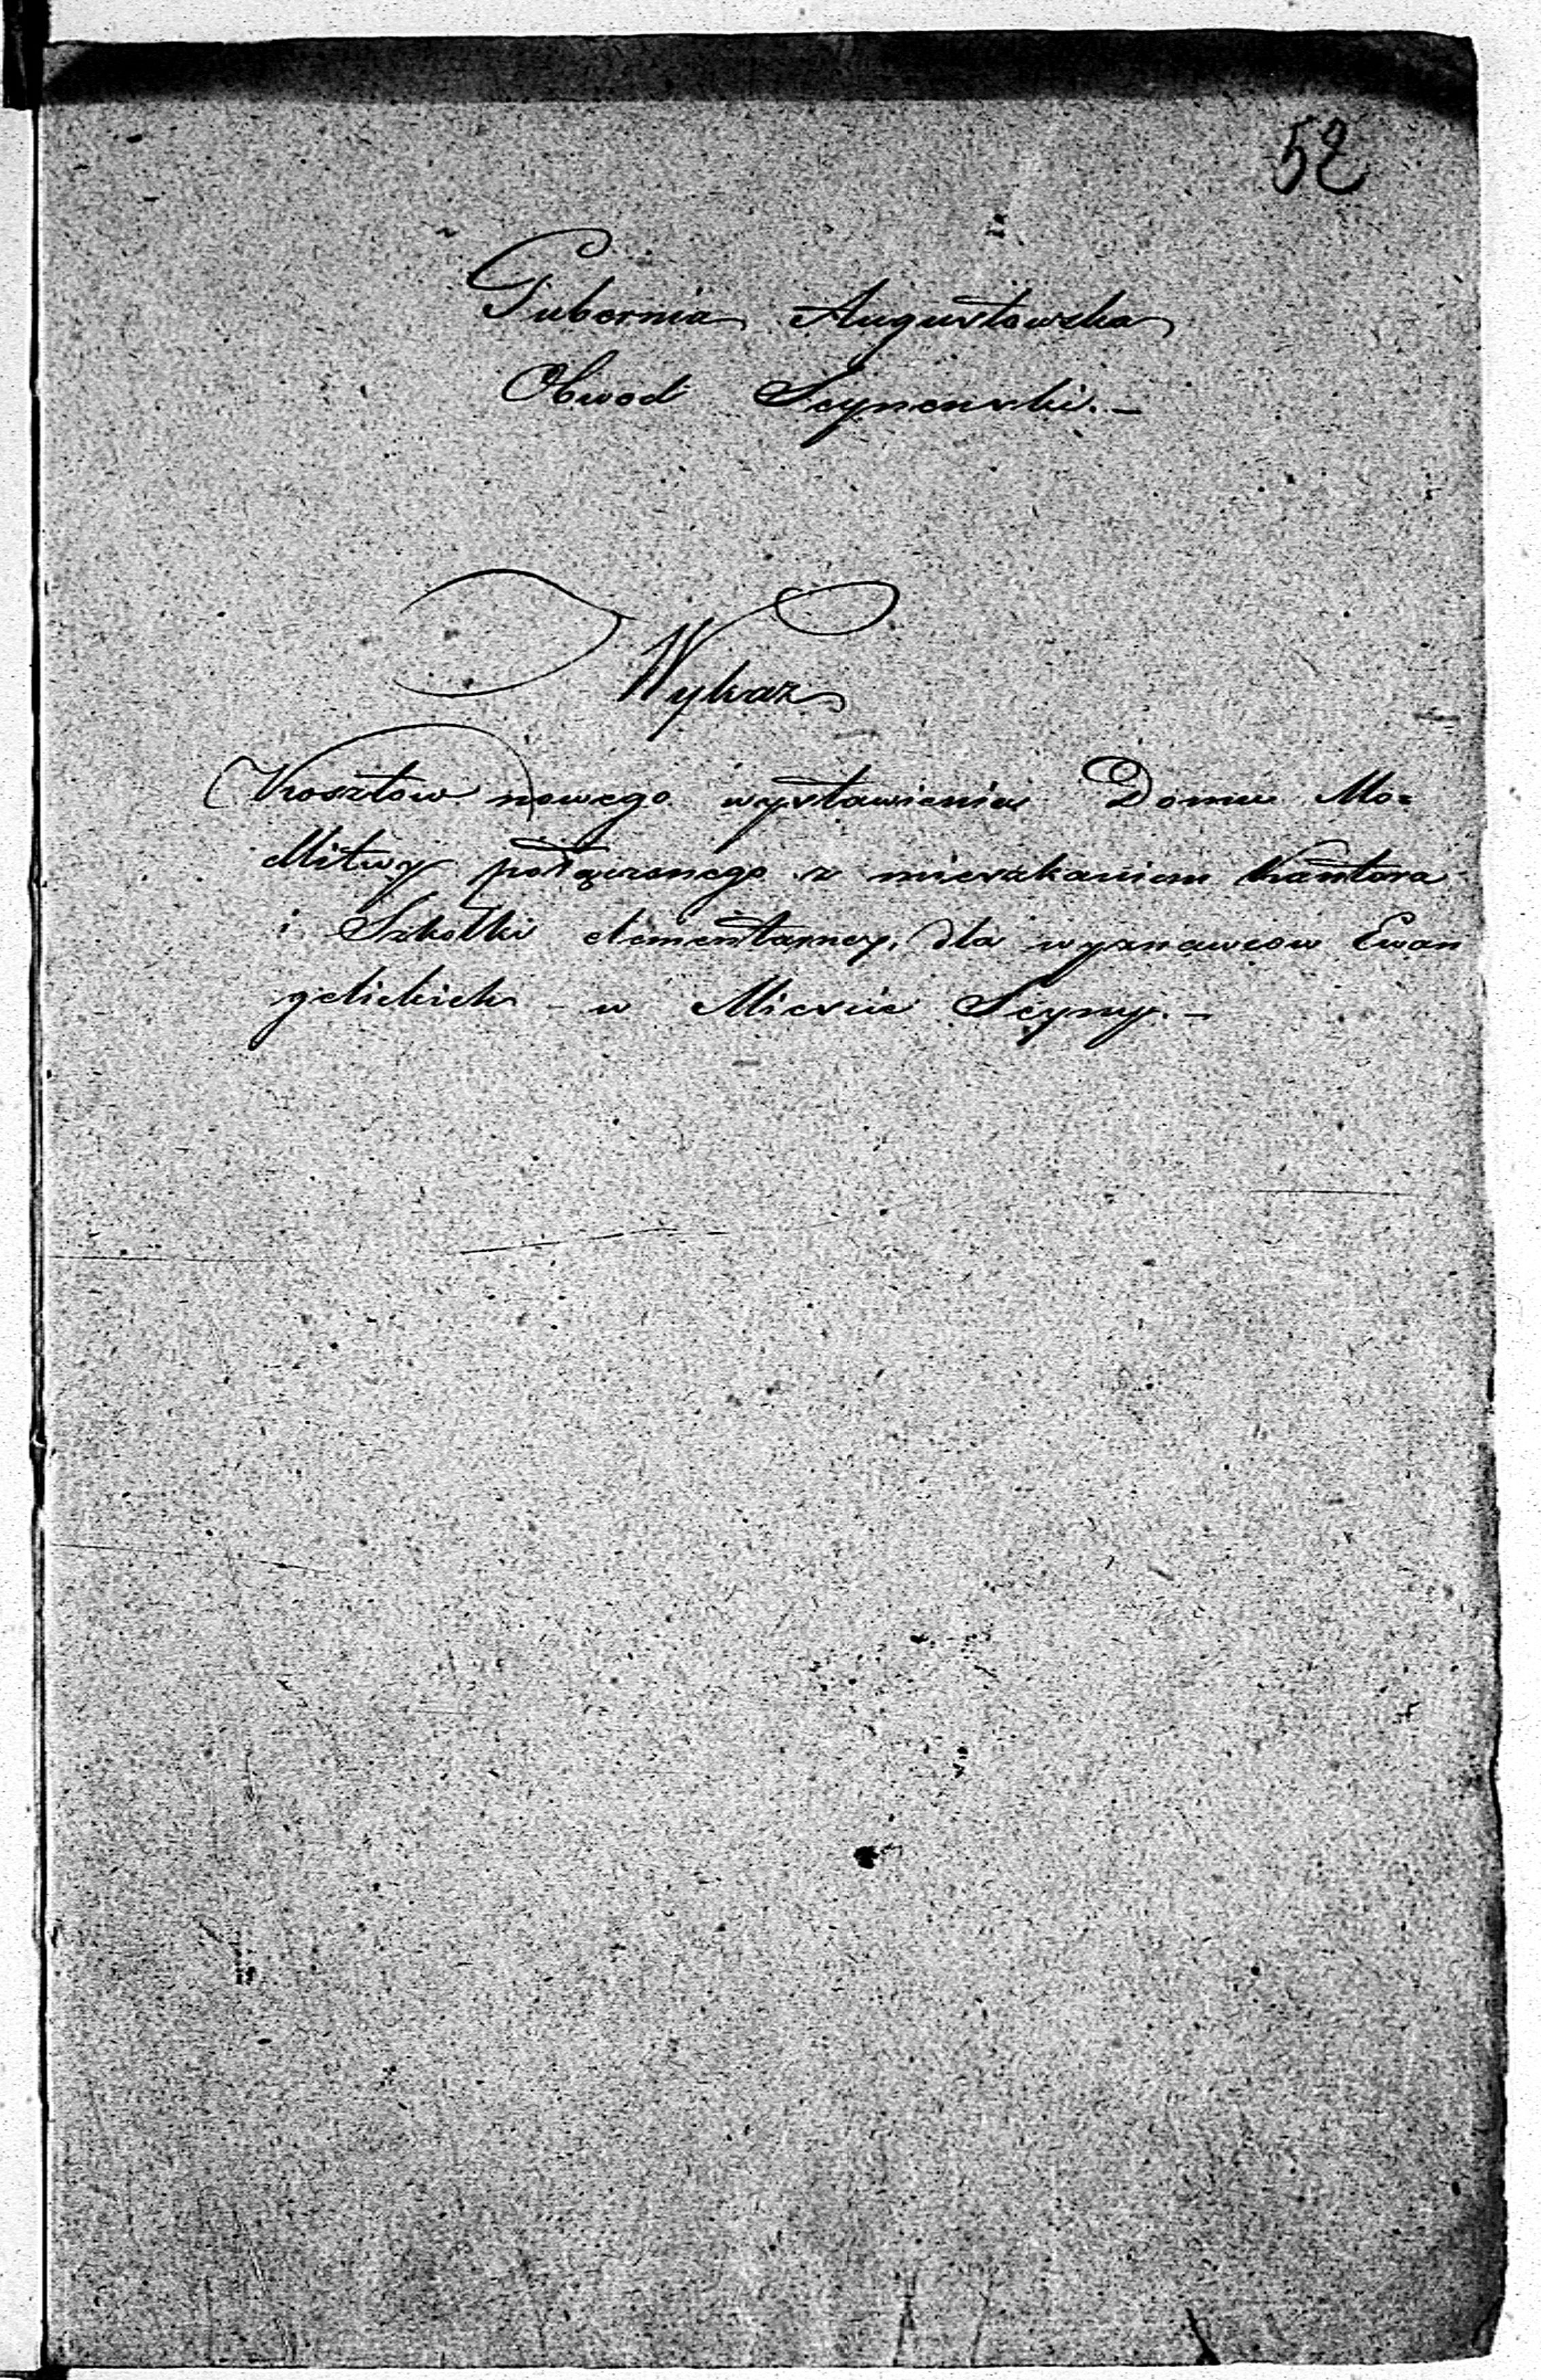 52
Gubernia Augustowska
Obwod Seynenski. –
Wykaz
Kosztow nowego wystawienia Domu Mo=
dlitwy połączonego z mieszkaniem Kantora
i Szkołki elementarney, dla wyznawcow Ewan
gelickich w Miescie Seyny. –